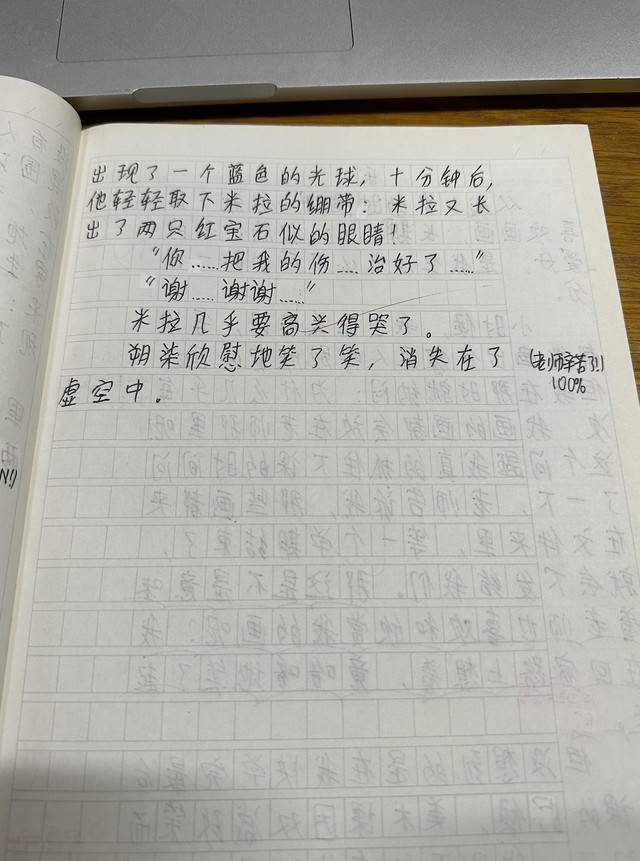 出现了一个蓝色的光球，十分钟后，
他轻轻取下米拉的绷带：米拉又长
出了两只红宝石似的眼睛！
“你……把我的伤……治好了……”
“谢……谢谢……”
米拉几乎要高兴得哭了。
朔柒欣慰地笑了笑，消失在了
虚空中。
(老师辛苦了!)
100%